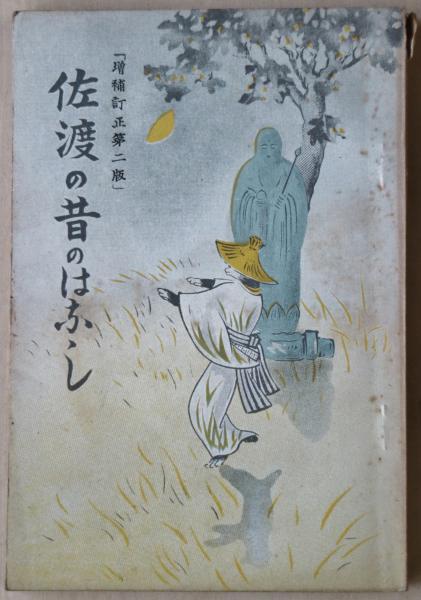 「増補訂正第二版」
佐渡の昔のはなし